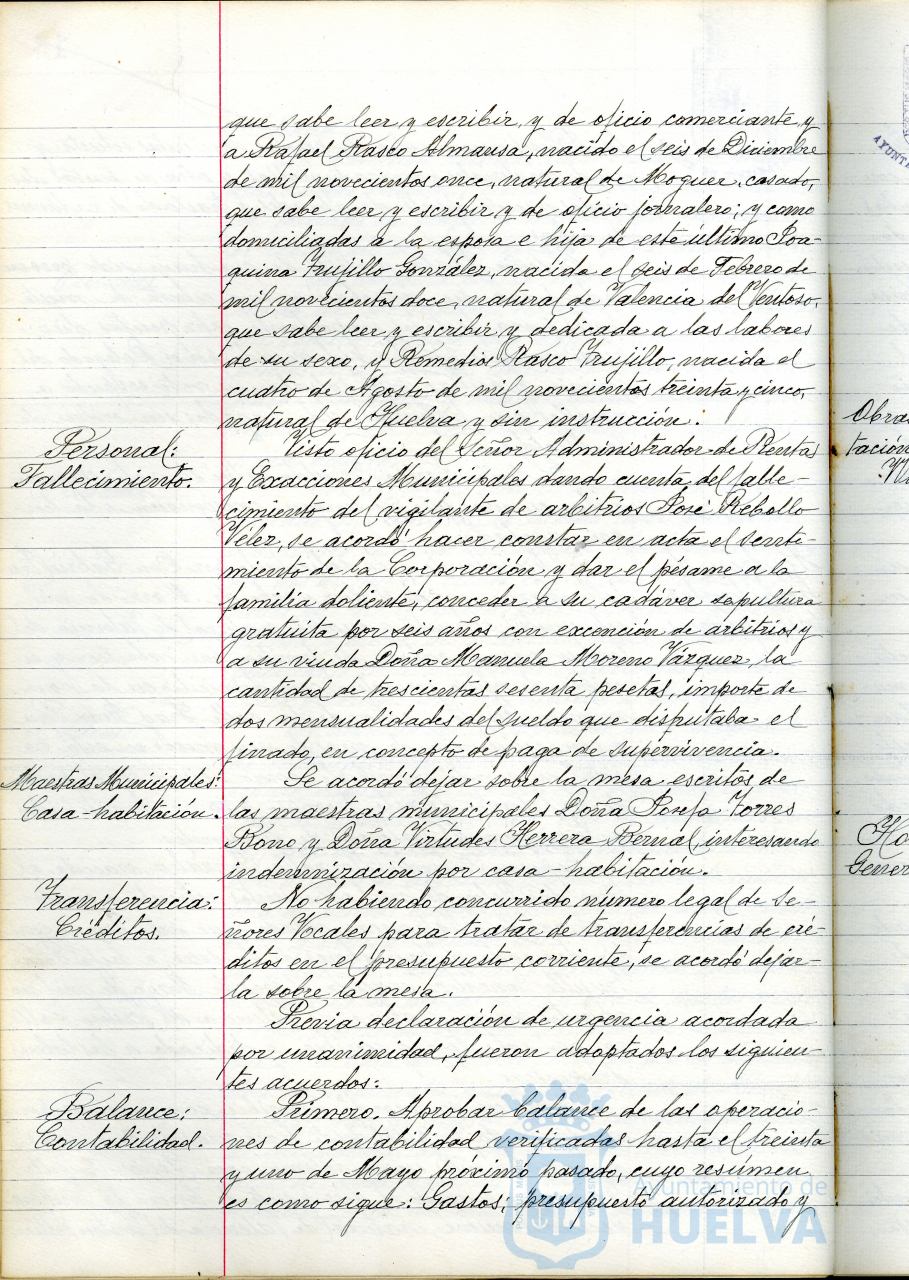 que sabe leer y escribir, y de oficio comerciante y
a Rafael Rasco Almansa, nacido el seis de Diciembre
de mil novecientos once, natural de Moguer, casado,
que sabe leer y escribir y de oficio jornalero; y como
domiciliadas a la esposa e hija de este último Joa-
quina Trujillo González, nacida el seis de Febrero de
mil novecientos doce, natural de Valencia del Ventoso,
que sabe leer y escribir y dedicada a las labores
de su sexo, y Remedios Rasco Trujillo, nacida el
cuatro de Agosto de mil novecientos treinta y cinco,
natural de Huelva y sin instrucción.
Personal:
Fallecimiento.
Visto oficio del Señor Administrador de Rentas
y Exacciones Municipales dando cuenta del falle-
cimiento del vigilante de arbitrios José Rebollo
Vélez, se acordó hacer constar en acta el senti-
miento de la Corporación y dar el pésame a la
familia doliente, conceder a su cadáver sepultura
gratuita por seis años con excención de arbitrios y
a su viuda Doña Manuela Moreno Vázquez, la
cantidad de trescientas sesenta pesetas, importe de
dos mensualidades del sueldo que disfrutaba el
finado, en concepto de paga de supervivencia.
Maestras Municipales:
Casa-habitación.
Se acordó dejar sobre la mesa escritos de
las maestras municipales Doña Josefa Torres
Bono y Doña Virtudes Herrera Bernal, interesando
indemnización por casa-habitación.
Transferencia:
Créditos.
No habiendo concurrido número legal de Se-
ñores Vocales para tratar de transferencias de cré-
ditos en el presupuesto corriente, se acordó dejar-
la sobre la mesa.
Previa declaración de urgencia acordada
por unanimidad, fueron adoptados los siguien-
tes acuerdos:
Balance:
Contabilidad.
Primero. Aprobar balance de las operacio-
nes de contabilidad verificadas hasta el treinta
y uno de Mayo próximo pasado, cuyo resúmen
es como sigue: Gastos; presupuesto autorizado y
Ayuntamiento de
HUELVA